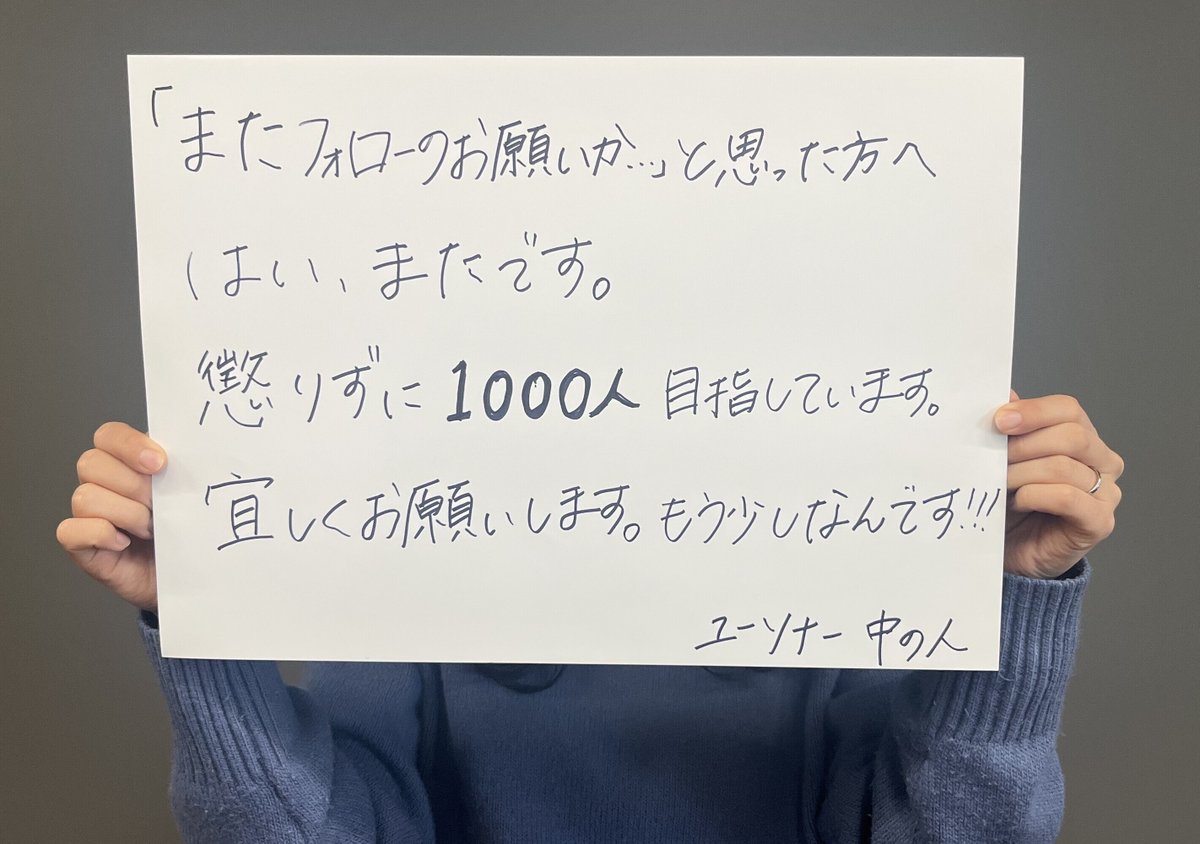 「またフォローのお願いか…」と思った方へ
はい、またです。
懲りずに1000人目指しています。
宜しくお願いします。もう少しなんです!!!
ユーソナー 中の人